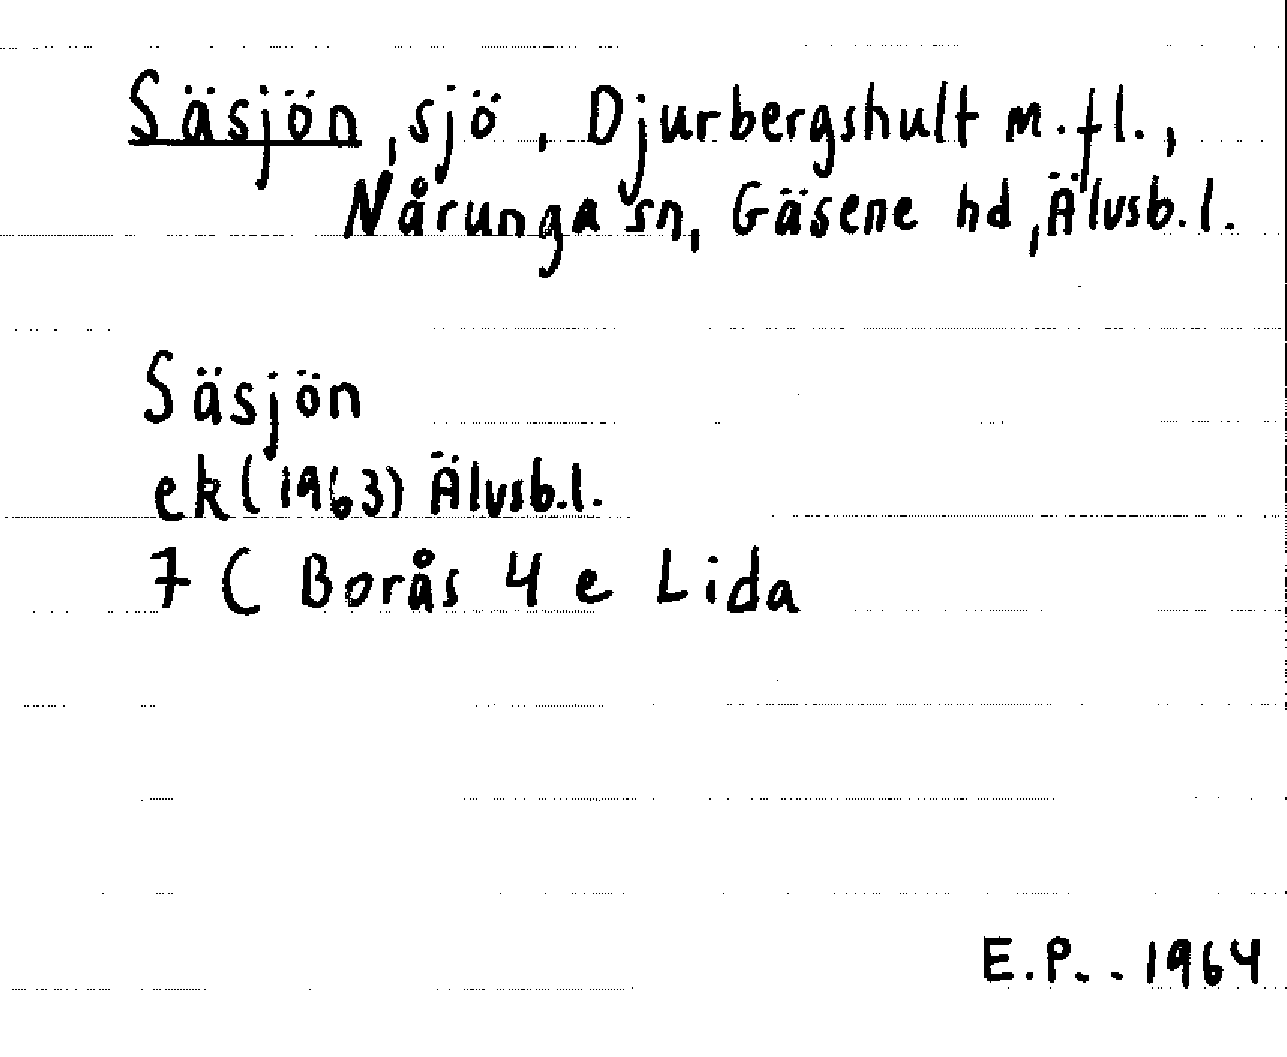 Säsjön, sjö, Djurbergshult m.fl.,
Nårunga sn, Gäsene hd, Älvsb.l.
Säsjön
ek (1963) Älvsb.l.
7 C Borås 4 e Lida
E.P. - 1964